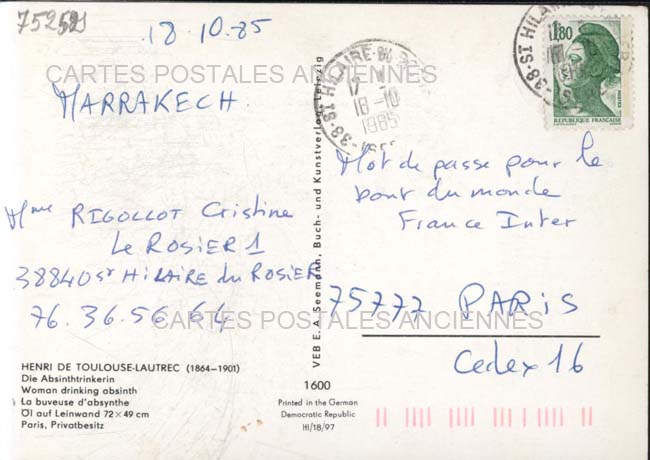 75252
18.10.85
CARTES POSTALES ANCIENNES
MARRAKECH.
Mme RIGOLLOT Cristine
Le ROSIER 1
38840 St HILAIRE du ROSIER
76.36.56.64
HENRI DE TOULOUSE-LAUTREC (1864–1901)
Die Absinthtrinkerin
Woman drinking absinth
La buveuse d'absynthe
Öl auf Leinwand 72×49 cm
Paris, Privatbesitz
VEB E. A. Seemann, Buch- und Kunstverlag, Leipzig
38-ST HILAIRE
17
18-10
1985
38-ST HILA
1,80
POSTES
REPUBLIQUE FRANÇAISE
Mot de passe pour le
bout du monde
France Inter
75777 PARIS
CARTES POSTALES ANCIENNES
Cedex 16
1600
Printed in the German
Democratic Republic
III/18/97